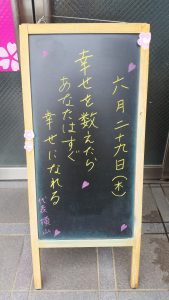 六月二十九日(木)
幸せを数えたら
あなたはすぐ
幸せになれる
代表 横山